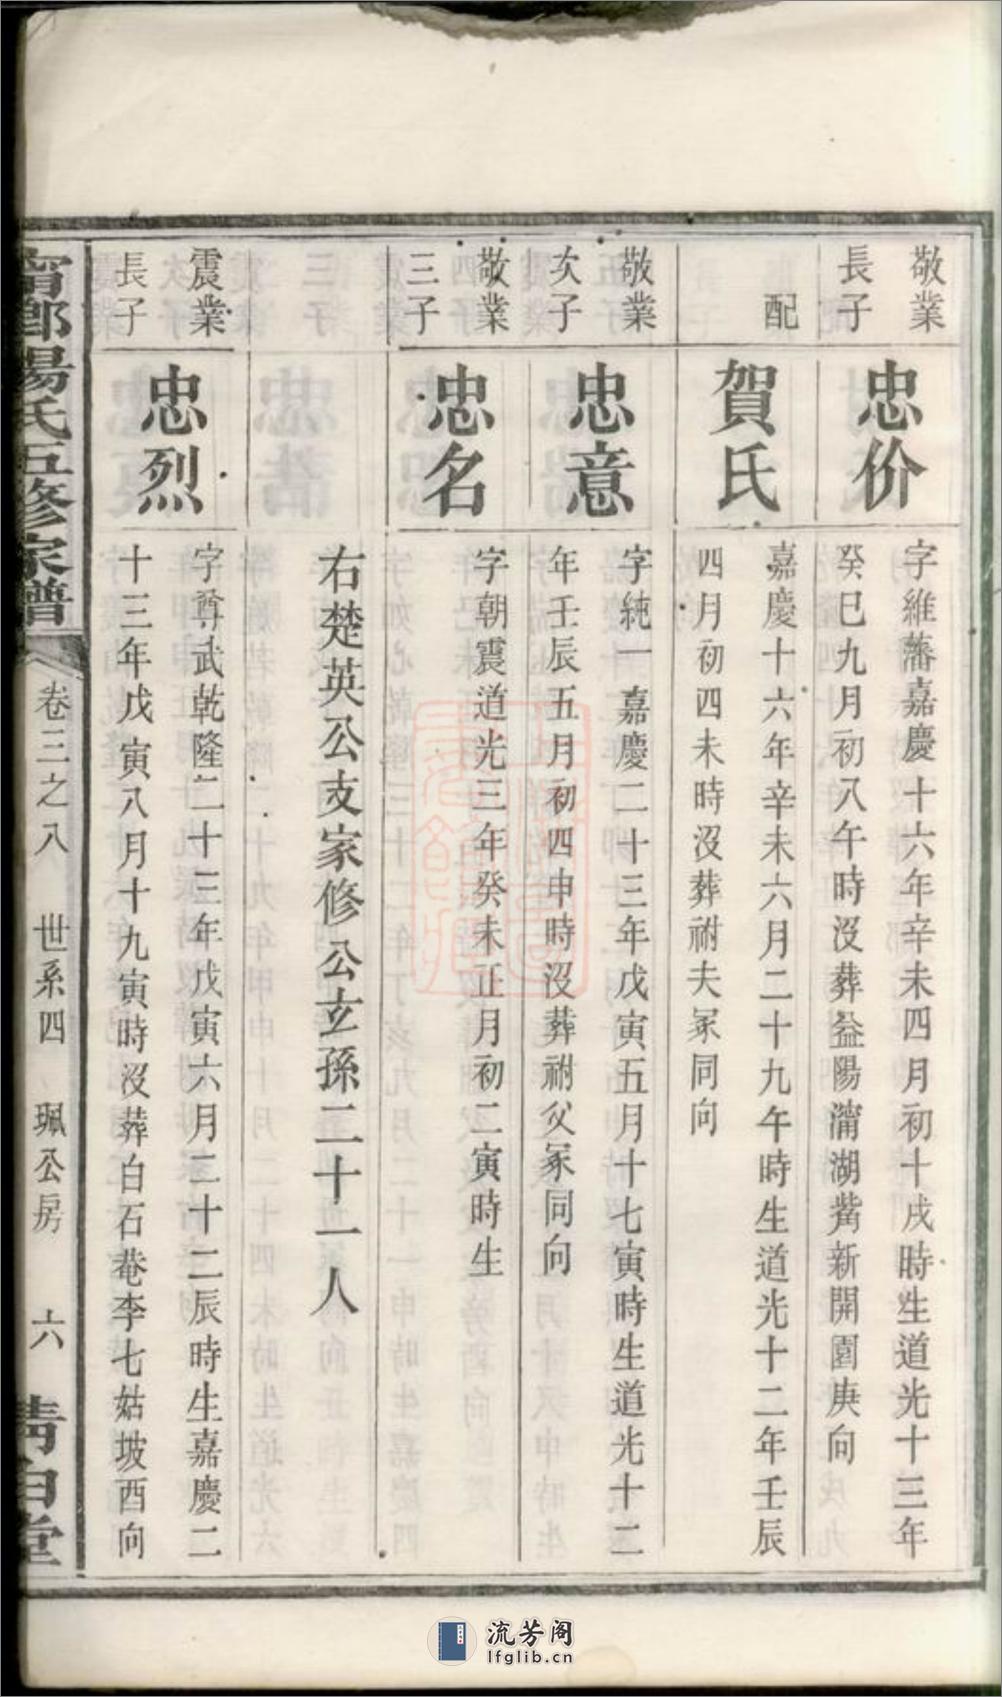 敬業
長子
忠价
字維藩嘉慶十六年辛未四月初十戌時生道光十三年
癸巳九月初八午時沒葬益陽瀟湖觜新開園庚向
配
賀氏
嘉慶十六年辛未六月二十九午時生道光十二年壬辰
四月初四未時沒葬祔夫冢同向
敬業
次子
忠意
字純一嘉慶二十三年戊寅五月十七寅時生道光十二
年壬辰五月初四申時沒葬祔父冢同向
敬業
三子
忠名
字朝震道光三年癸未正月初二寅時生
右楚英公支家修公玄孫二十一人
震業
長子
忠烈
字尊武乾隆二十三年戊寅六月二十二辰時生嘉慶二
十三年戊寅八月十九寅時沒葬白石菴李七姑坡酉向
甯鄉楊氏五修家譜
卷三之八 世系四 珮公房 六
清白堂
流芳阁
lfglib.cn